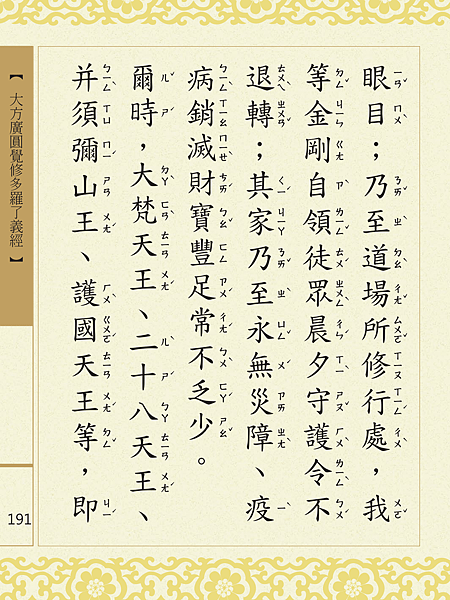 眼目；乃至道場所修行處，我
等金剛自領徒眾晨夕守護令不
退轉；其家乃至永無災障、疫
病銷滅財寶豐足常不乏少。
爾時，大梵天王、二十八天王、
并須彌山王、護國天王等，即
【 大方廣圓覺修多羅了義經 】
191